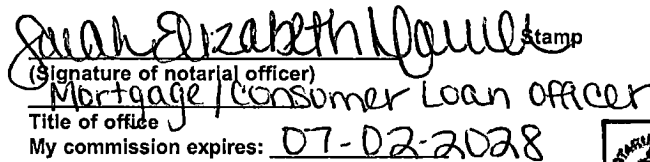 Sarah Elizabeth Stamp
(Signature of notarial officer)
Mortgage / Consumer Loan Officer
Title of office
My commission expires: 07-02-2028